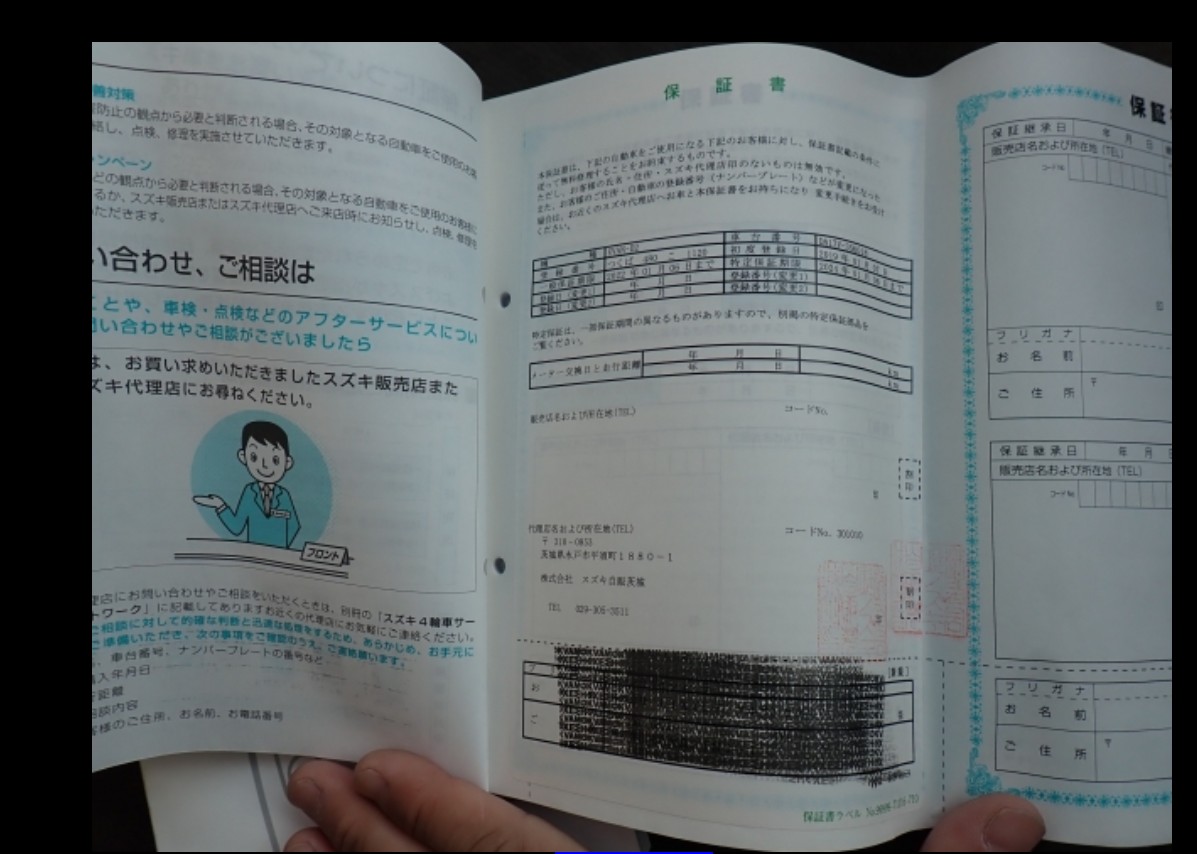 善対策
防止の観点から必要と判断される場合、その対象となる自動車をご使用のお客
絡し、点検、修理を実施させていただきます。
ンペーン
どの観点から必要と判断される場合、その対象となる自動車をご使用のお客様に
るか、スズキ販売店またはスズキ代理店へご来店時にお知らせし、点検、修理を
いただきます。
い合わせ、ご相談は
ことや、車検・点検などのアフターサービスについ
問い合わせやご相談がございましたら
は、お買い求めいただきましたスズキ販売店また
ズキ代理店にお尋ねください。
フロント
店にお問い合わせやご相談をいただくときは、別冊の「スズキ4輪車サー
トワーク」に記載してありますお近くの代理店にお気軽にご連絡ください。
ご相談に対して的確な判断と迅速な処理をするため、あらかじめ、お手元に
準備いただき、次の事項をご確認のうえ、ご連絡願います。
、車台番号、ナンバープレートの番号など
入年月日
距離
相談内容
客様のご住所、お名前、お電話番号
保証書
本保証書は、下記の自動車をご使用になる下記のお客様に対し、保証書記載の条件に
従って無料修理することをお約束するものです。
ただし、お客様の氏名・住所・スズキ代理店印のないものは無効です。
また、お客様のご住所・自動車の登録番号(ナンバープレート)などが変更になった
場合は、お近くのスズキ代理店へお車と本保証書をお持ちになり 変更手続きをお受け
ください。
機種 車台番号
登録番号 つくば 480 1120 初度登録日
一般保証期限 2022年01月08日まで 特定保証期限 2024年01月08日まで
登録日(変更1) 年 月 日 登録番号(変更1)
登録日(変更2) 年 月 日 登録番号(変更2)
特定保証は、一部保証期間の異なるものがありますので、別掲の特定保証部品を
ご覧ください。
メーター交換日とお行距離 年 月 日 km
年 月 日 km
販売店名および所在地(TEL) コードNo.
割印
印
代理店名および所在地(TEL) コードNo.
〒 310-0853
茨城県水戸市平須町1880-1
株式会社 スズキ自販茨城
TEL 029-305-3511
割印
印
お
ご
保証書ラベル
保証
保証継承日 年 月
販売店名および所在地(TEL)
コードNo.
印
フリガナ
お名前
ご住所 〒
保証継承日 年 月
販売店名および所在地(TEL)
コードNo.
フリガナ
お名前
ご住所 〒